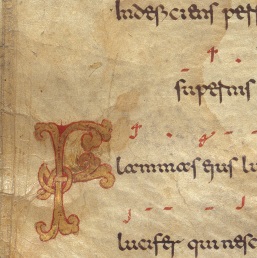 Indesciens pets
supernis
Flammas eius lu
lucifer qui nesc